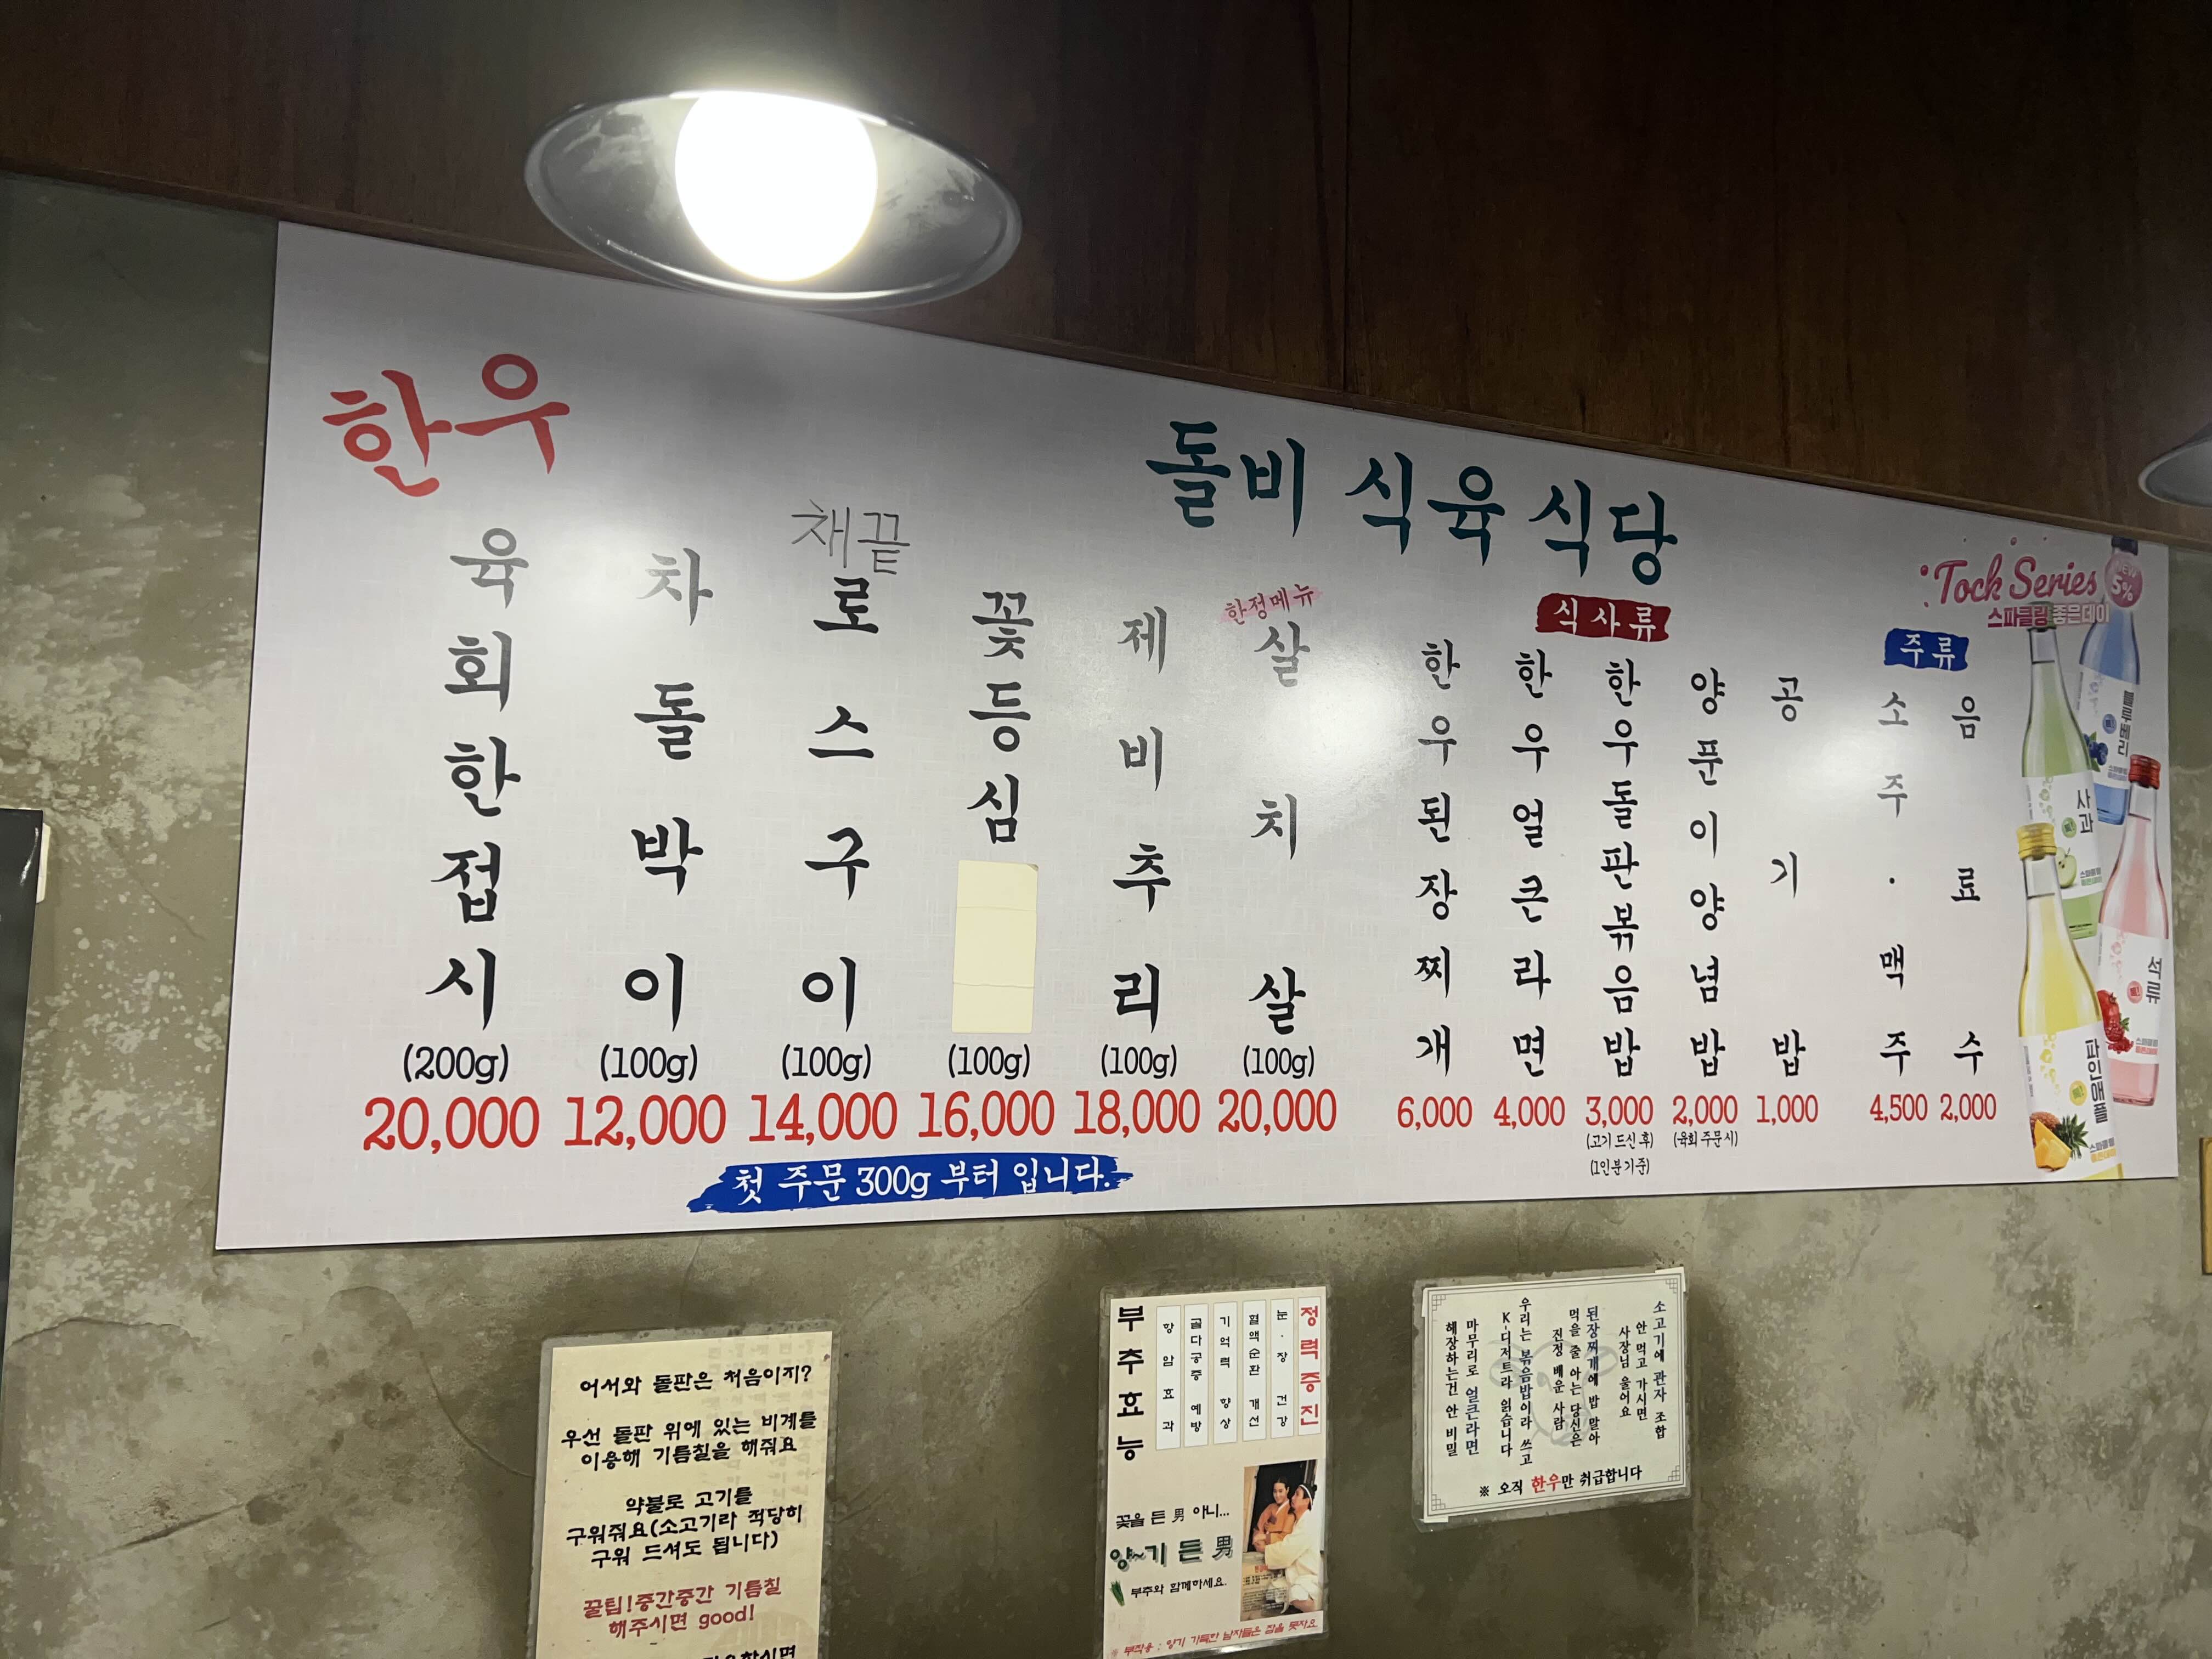 한우
돌비 식육식당
육회한접시
(200g)
20,000
차돌박이
(100g)
12,000
채끝
로스구이
(100g)
14,000
꽃등심
(100g)
16,000
제비추리
(100g)
18,000
한정메뉴
살치살
(100g)
20,000
첫 주문 300g 부터 입니다.
식사류
한우된장찌개
6,000
한우얼큰라면
4,000
한우돌판볶음밥
3,000
(고기 드신 후)
(1인분기준)
양푼이양념밥
2,000
(육회 주문시)
공기밥
1,000
주류
소주·맥주
4,500
음료수
2,000
Tock Series
NEW
5%
스파클링 좋은데이
블루베리
사과
석류
파인애플
어서와 돌판은 처음이지?
우선 돌판 위에 있는 비계를
이용해 기름칠을 해줘요
약불로 고기를
구워줘요(소고기라 적당히
구워 드셔도 됩니다)
꿀팁!중간중간 기름칠
해주시면 good!
부추효능
항암효과
골다공증 예방
기억력 향상
혈액순환 개선
눈·장 건강
정력증진
꽃을 든 男 아니...
양~기 든 男
부추와 함께하세요.
부작용 : 양기 가득한 남자들은 잠을 못자요
소고기에 관자 조합
안 먹고 가시면
사장님 울어요
된장찌개에 밥 말아
먹을 줄 아는 당신은
진정 배운 사람
우리는 볶음밥이라 쓰고
K-디저트라 읽습니다
마무리로 얼큰라면
해장하는건 안 비밀
※ 오직 한우만 취급합니다